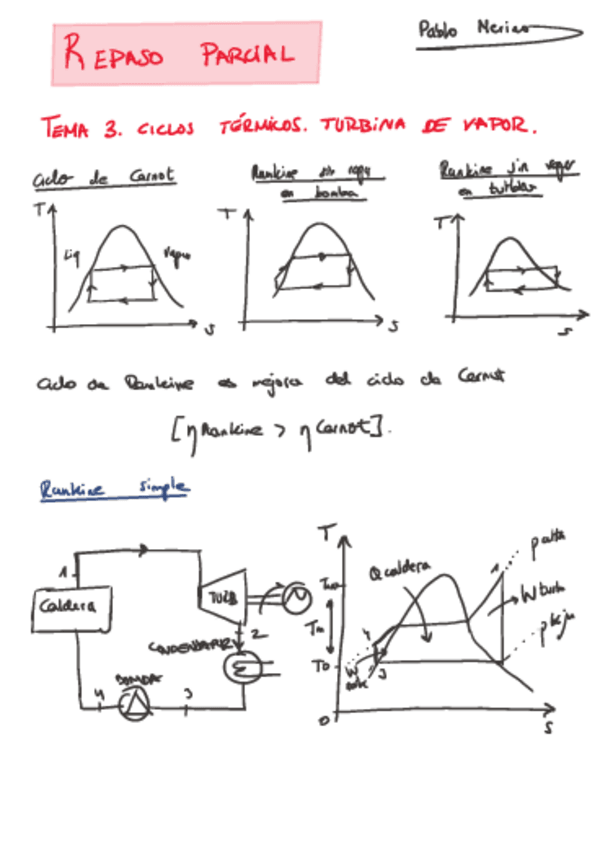 Pablo Merino
REPASO PARCIAL
TEMA 3. CICLOS TÉRMICOS. TURBINA DE VAPOR.
Ciclo de Carnot
Rankine sin
en bomba
Rankine sin
en
T
Liq
Vapor
S
T
S
T
S
Ciclo de Rankine es mejora del ciclo de Carnot
[η Rankine > η Carnot].
Rankine simple
1
Caldera
TURB
2
CONDENSADOR
BOMBA
4
3
T
Q caldera
1
P alta
W turb
P baja
Tm
T0
4
3
W
0
S